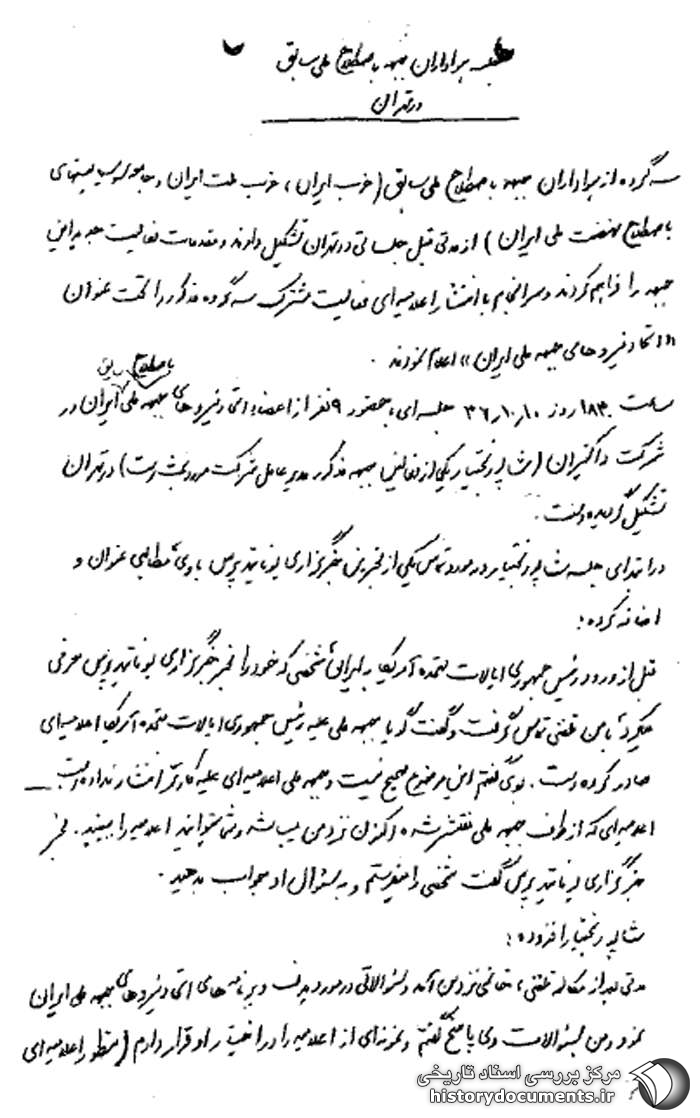 جلسه هواداران جبهه باصطلاح ملی سابق
در تهران
سه گروه از هواداران جبهه باصطلاح ملی سابق (حزب ایران، حزب ملت ایران و جامعه سوسیالیستهای
باصطلاح نهضت ملی ایران) از مدتی قبل جلساتی در تهران تشکیل دادند و مقدمات فعالیت جدید این
جبهه را فراهم کردند و سرانجام با انتشار اعلامیه‌ای فعالیت مشترک سه گروه مذکور را تحت عنوان
«اتحاد نیروهای جبهه ملی ایران» اعلام نمودند.
باصطلاح سابق
ساعت ۱۸۳۰ روز ۳۶٫۱۰٫۱۰ جلسه‌ای با حضور ۹ نفر از اعضاء اتحاد نیروهای جبهه ملی ایران در
شرکت (شاپور بختیار یکی از فعالین جبهه مذکور مدیر عامل شرکت مورد بحث است) در تهران
تشکیل گردیده است.
در ابتدای جلسه شاپور بختیار در مورد تماس یکی از مخبرین خبرگزاری یونایتدپرس با وی مطالبی عنوان و
اضافه کرده:
قبل از ورود رئیس جمهوری ایالات متحده آمریکا به ایران شخصی که خود را مخبر خبرگزاری یونایتدپرس معرفی
میکرد با من تلفنی تماس گرفت و گفت گویا جبهه ملی علیه رئیس جمهوری ایالات متحده آمریکا اعلامیه‌ای
صادر کرده است. بوی گفتم این موضوع صحیح نیست و جبهه ملی اعلامیه‌ای علیه کارتر انتشار نداده است
اعلامیه‌ای که از طرف جبهه ملی منتشر شده اکنون نزد من میباشد و شما میتوانید اعلامیه را ببینید. مخبر
خبرگزاری یونایتدپرس گفت شخصی را میفرستم و به سئوال او جواب بدهید.
شاپور بختیار افزوده:
مدتی بعد از مکالمه تلفنی، خانمی نزد من آمد و سئوالاتی در مورد هدف و برنامه‌های اتحاد نیروهای جبهه ملی ایران
نمود و من بسئوالات وی پاسخ گفتم و نمونه‌ای از اعلامیه را در اختیار او قرار دادم (منظور اعلامیه‌ای
مرکز بررسی اسناد تاریخی
historydocuments.ir